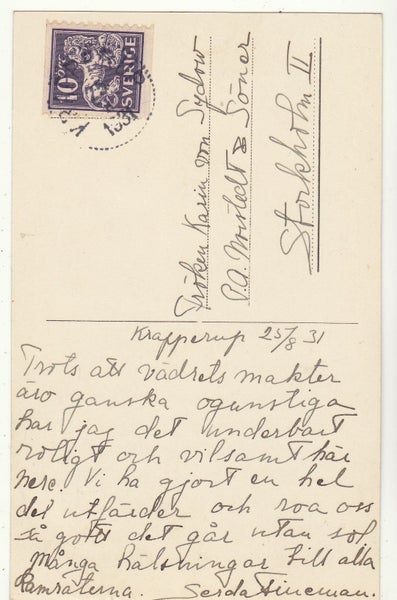 10 ÖRE
SVERIGE
1931
Fröken Karin von Sydow
P.A. Norstedt & Söner
Stockholm II
Krapperup 25/8 31
Trots att vädrets makter
äro ganska ogunstiga
har jag det underbart
roligt och vilsamt här
nere. Vi ha gjort en hel
del utfärder och roa oss
så gott det går utan sol.
Många hälsningar till alla
Kamraterna. Gerda Fineman.